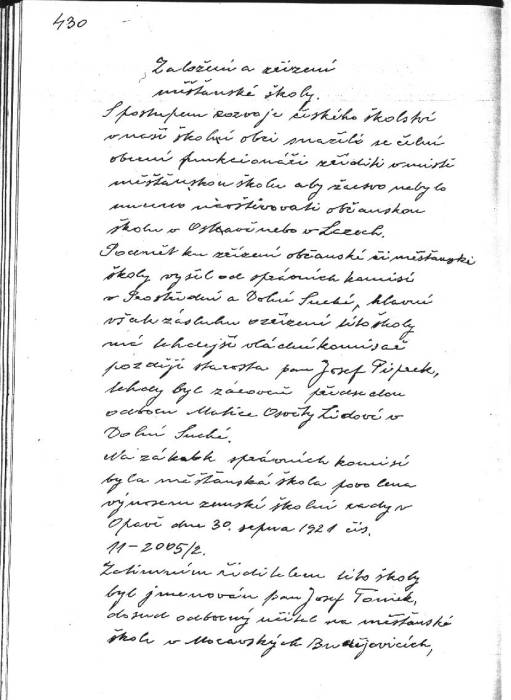 430
Založení a zřízení
měšťanské školy.
S postupem rozvoje českého školství
v naší školní obci snažilo se čelní
obecní funkcionáři zříditi v místě
měšťanskou školu aby žactvo nebylo
nuceno navštěvovati občanskou
školu v Ostravě nebo v Lazech.
Podnět ku zřízení občanské či měšťanské
školy vyšel od správních komisí
v Prostřední a Dolní Suché, hlavní
však zásluhu o zřízení této školy
má tehdejší vládní komisař
později starosta pan Josef
tehdy byl zároveň předsedou
odboru Matice Osvěty Lidové v
Dolní Suché.
Na zákrok správních komisí
byla měšťanská škola povolena
výnosem zemské školní rady v
Opavě dne 30. srpna 1921 čís.
11-2005/2.
Zatímním ředitelem této školy
byl jmenován pan Josef Tomek,
dosud odborný učitel na měšťanské
škole v Moravských Budějovicích,